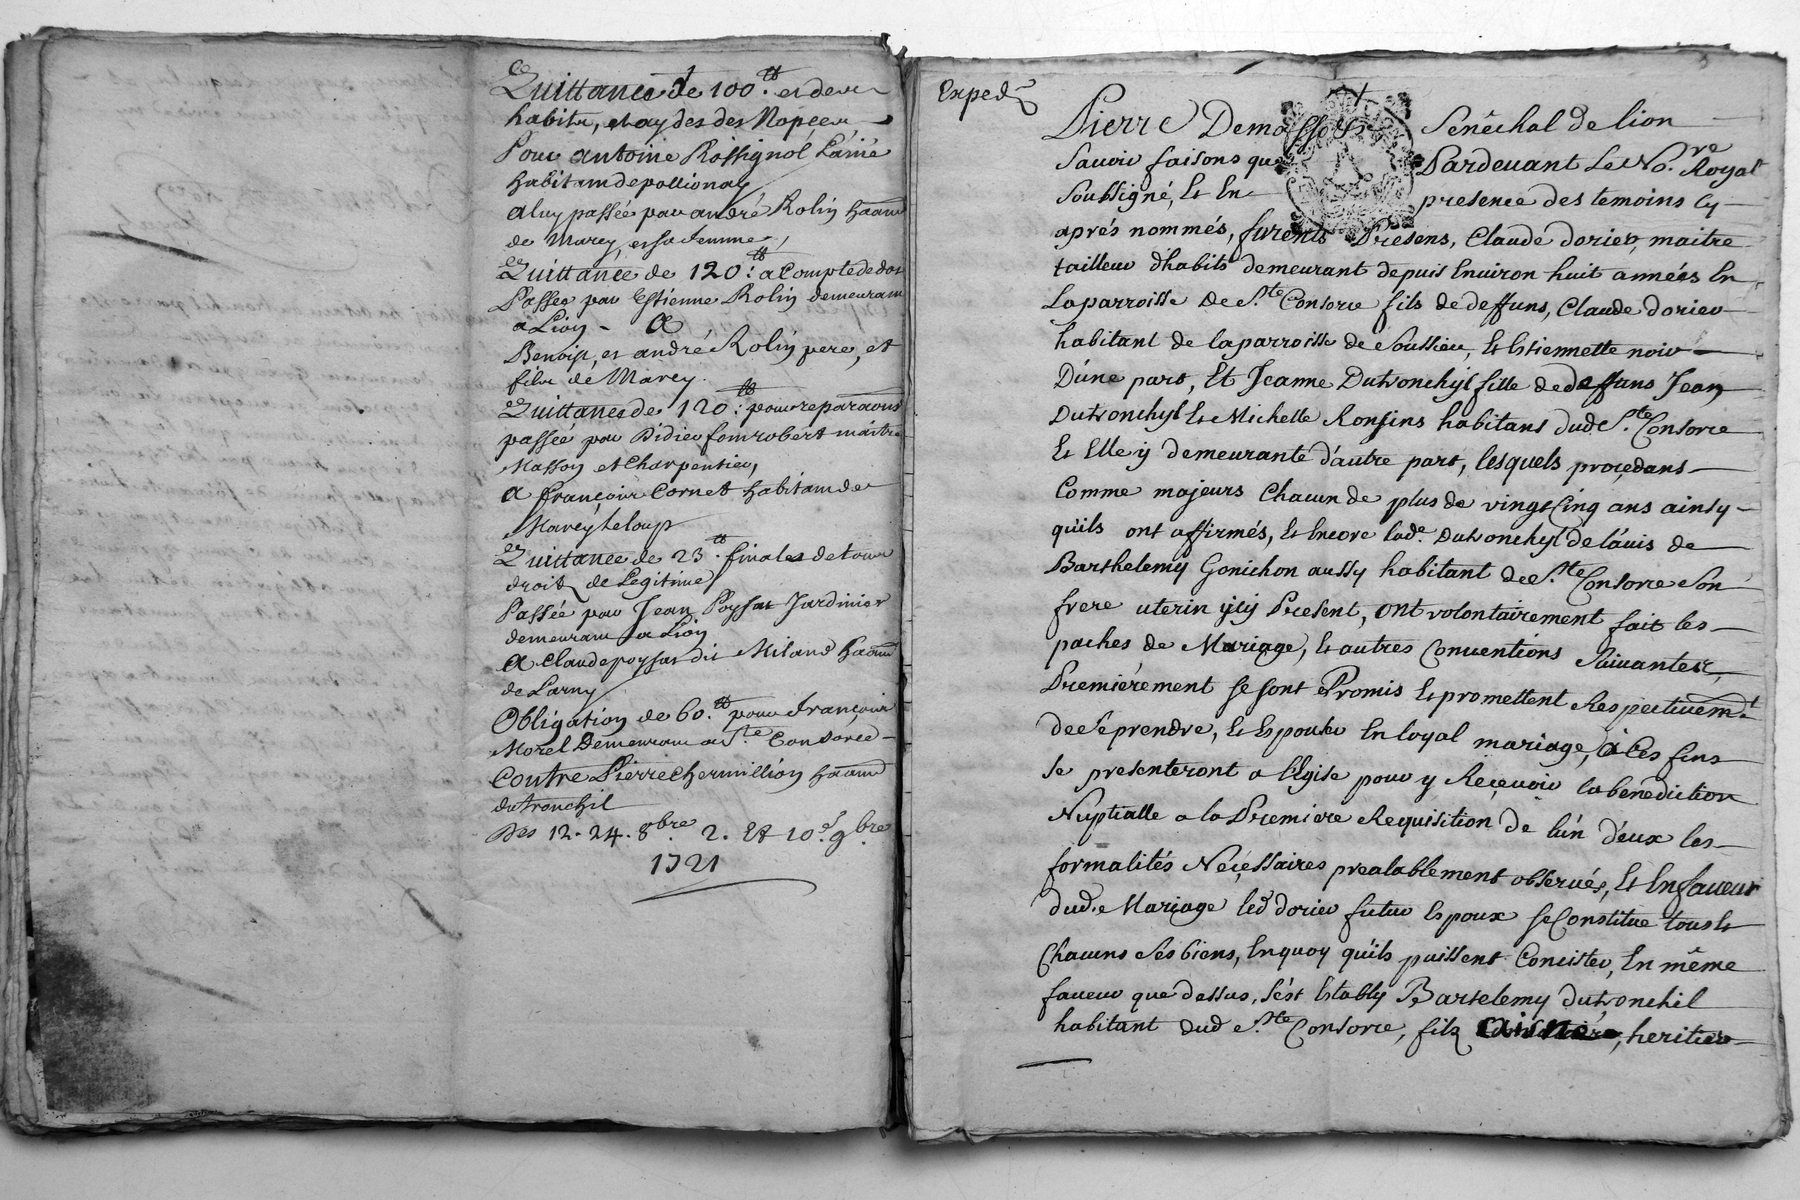 Quittance de 100.ₜₜ et des
habits, et aydes des Nopces
Pour antoine Rossignol L'ainé
habitant de pollionay
a luy passée par andré Rolin haant
de Marcy, et sa femme,
Quittance de 120:ₜₜ a Compte de dot
Passée par Estienne Rolin demeurant
a Lion - A
Benoist, et andré Rolin pere, et
fils de Marcy.
Quittance de 120:ₜₜ pour reparaons
passée par Didier fomrobert maitre
Masson et Charpentier,
A françois Cornet habitant de
Marcy le loup
Quittance de 23.ₜₜ finale de tous
droits de Legitime
Passée par Jean Poysat Jardinier
demeurant a Lion
A Claude poysat dit Miland haant
de Larny
Obligation de 60.ₜₜ pour françois
Morel Demeurant a S.te Consorce
Contre Pierre Chermillion haant
du tronchil
Des 12. 24. 8bre 2. Et 10.e 9bre
1721
Exped.é
Pierre Demasso Sr Senéchal de lion
Savoir faisons que Pardevant Le No.re Royal
Soussigné, Et En presence des temoins Cy
aprés nommés, furents Présens, Claude dorier, maitre
tailleur d'habits demeurant depuis Environ huit années En
La parroisse de S.te Consorce fils de deffuns, Claude dorier
habitant de la parroisse de Soussieu, Et Estiennette noir
D'une part, Et Jeanne Dutronchyl fille de deffuns Jean
Dutronchyl Et Michelle Ronsins habitans dud. S.te Consorce
Et Elle y demeurante d'autre part, lesquels proçedans
Comme majeurs Chacun de plus de vingt Cinq ans ainsy
qu'ils ont affirmés, Et Encore lad.e Dutronchyl de l'avis de
Barthelemy Gonichon aussy habitant de S.te Consorce Son
frere uterin jcy Présent, Ont volontairement fait les
paches de Mariage, Et autres Conventions Suivantes,
Premiérement Se sont Promis Et promettent Respectivemt
de Se prendre, Et Espouser En loyal mariage, à Ces fins
Se presenteront a l'Egise pour y Reçevoir la benediction
Nuptialle a la Premiere Requisition de l'un d'eux les
formalités Néçéssaires prealablement observés, Et En faveur
dud. Mariage led dorier futur Espoux Se Constitue tous Et
Chacuns Ses biens, En quoy qu'ils puissent Consister, En même
faveur que dessus, S'est Estably Bartelemy dutronchil
habitant dud S.te Consorce, fils aisné, heritier